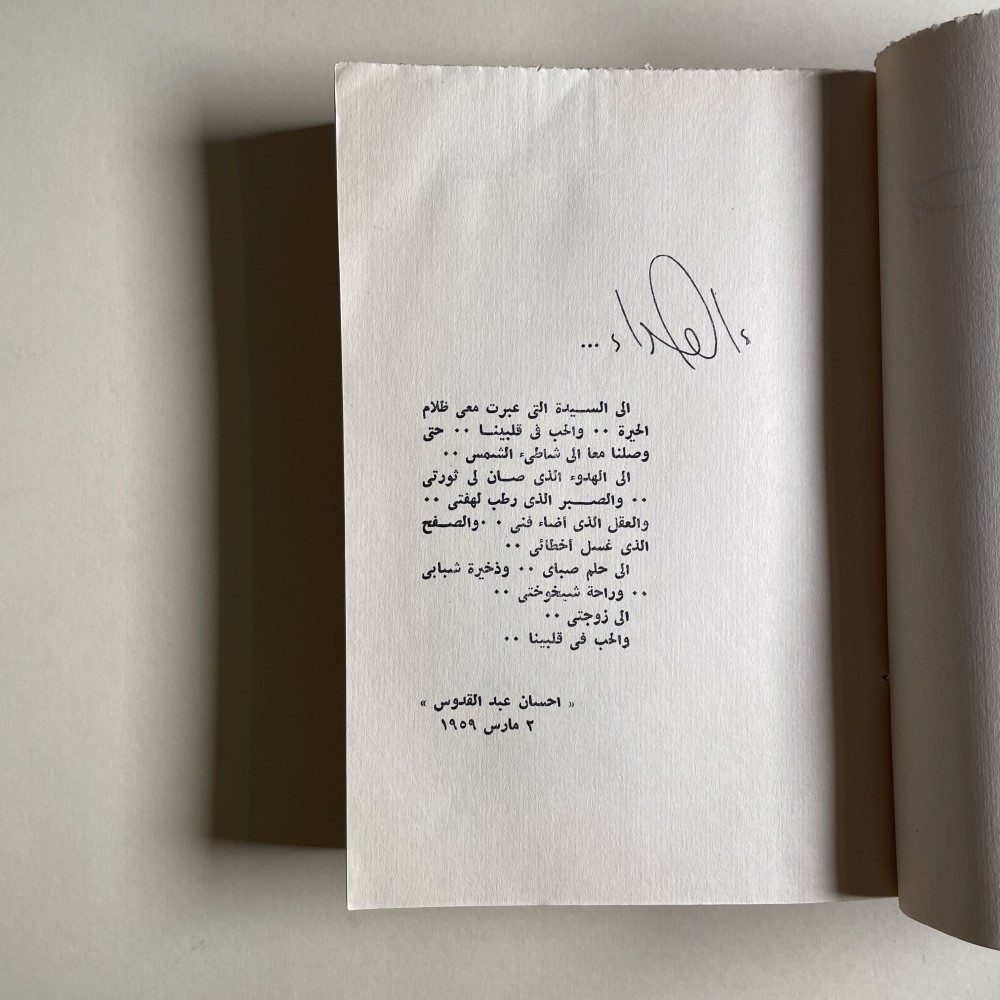 الاهداء ...
الى السيدة التى عبرت معى ظلام
الحيرة .. والحب فى قلبينا .. حتى
وصلنا معا الى شاطىء الشمس ..
الى الهدوء الذى صان لى ثورتى
.. والصبر الذى رطب لهفتى ..
والعقل الذى أضاء فنى . .والصفح
الذى غسل أخطائى ..
الى حلم صباى .. وذخيرة شبابى
.. وراحة شيخوختى ..
الى زوجتى ..
والحب فى قلبينا ..
« احسان عبد القدوس »
٢ مارس ١٩٥٩